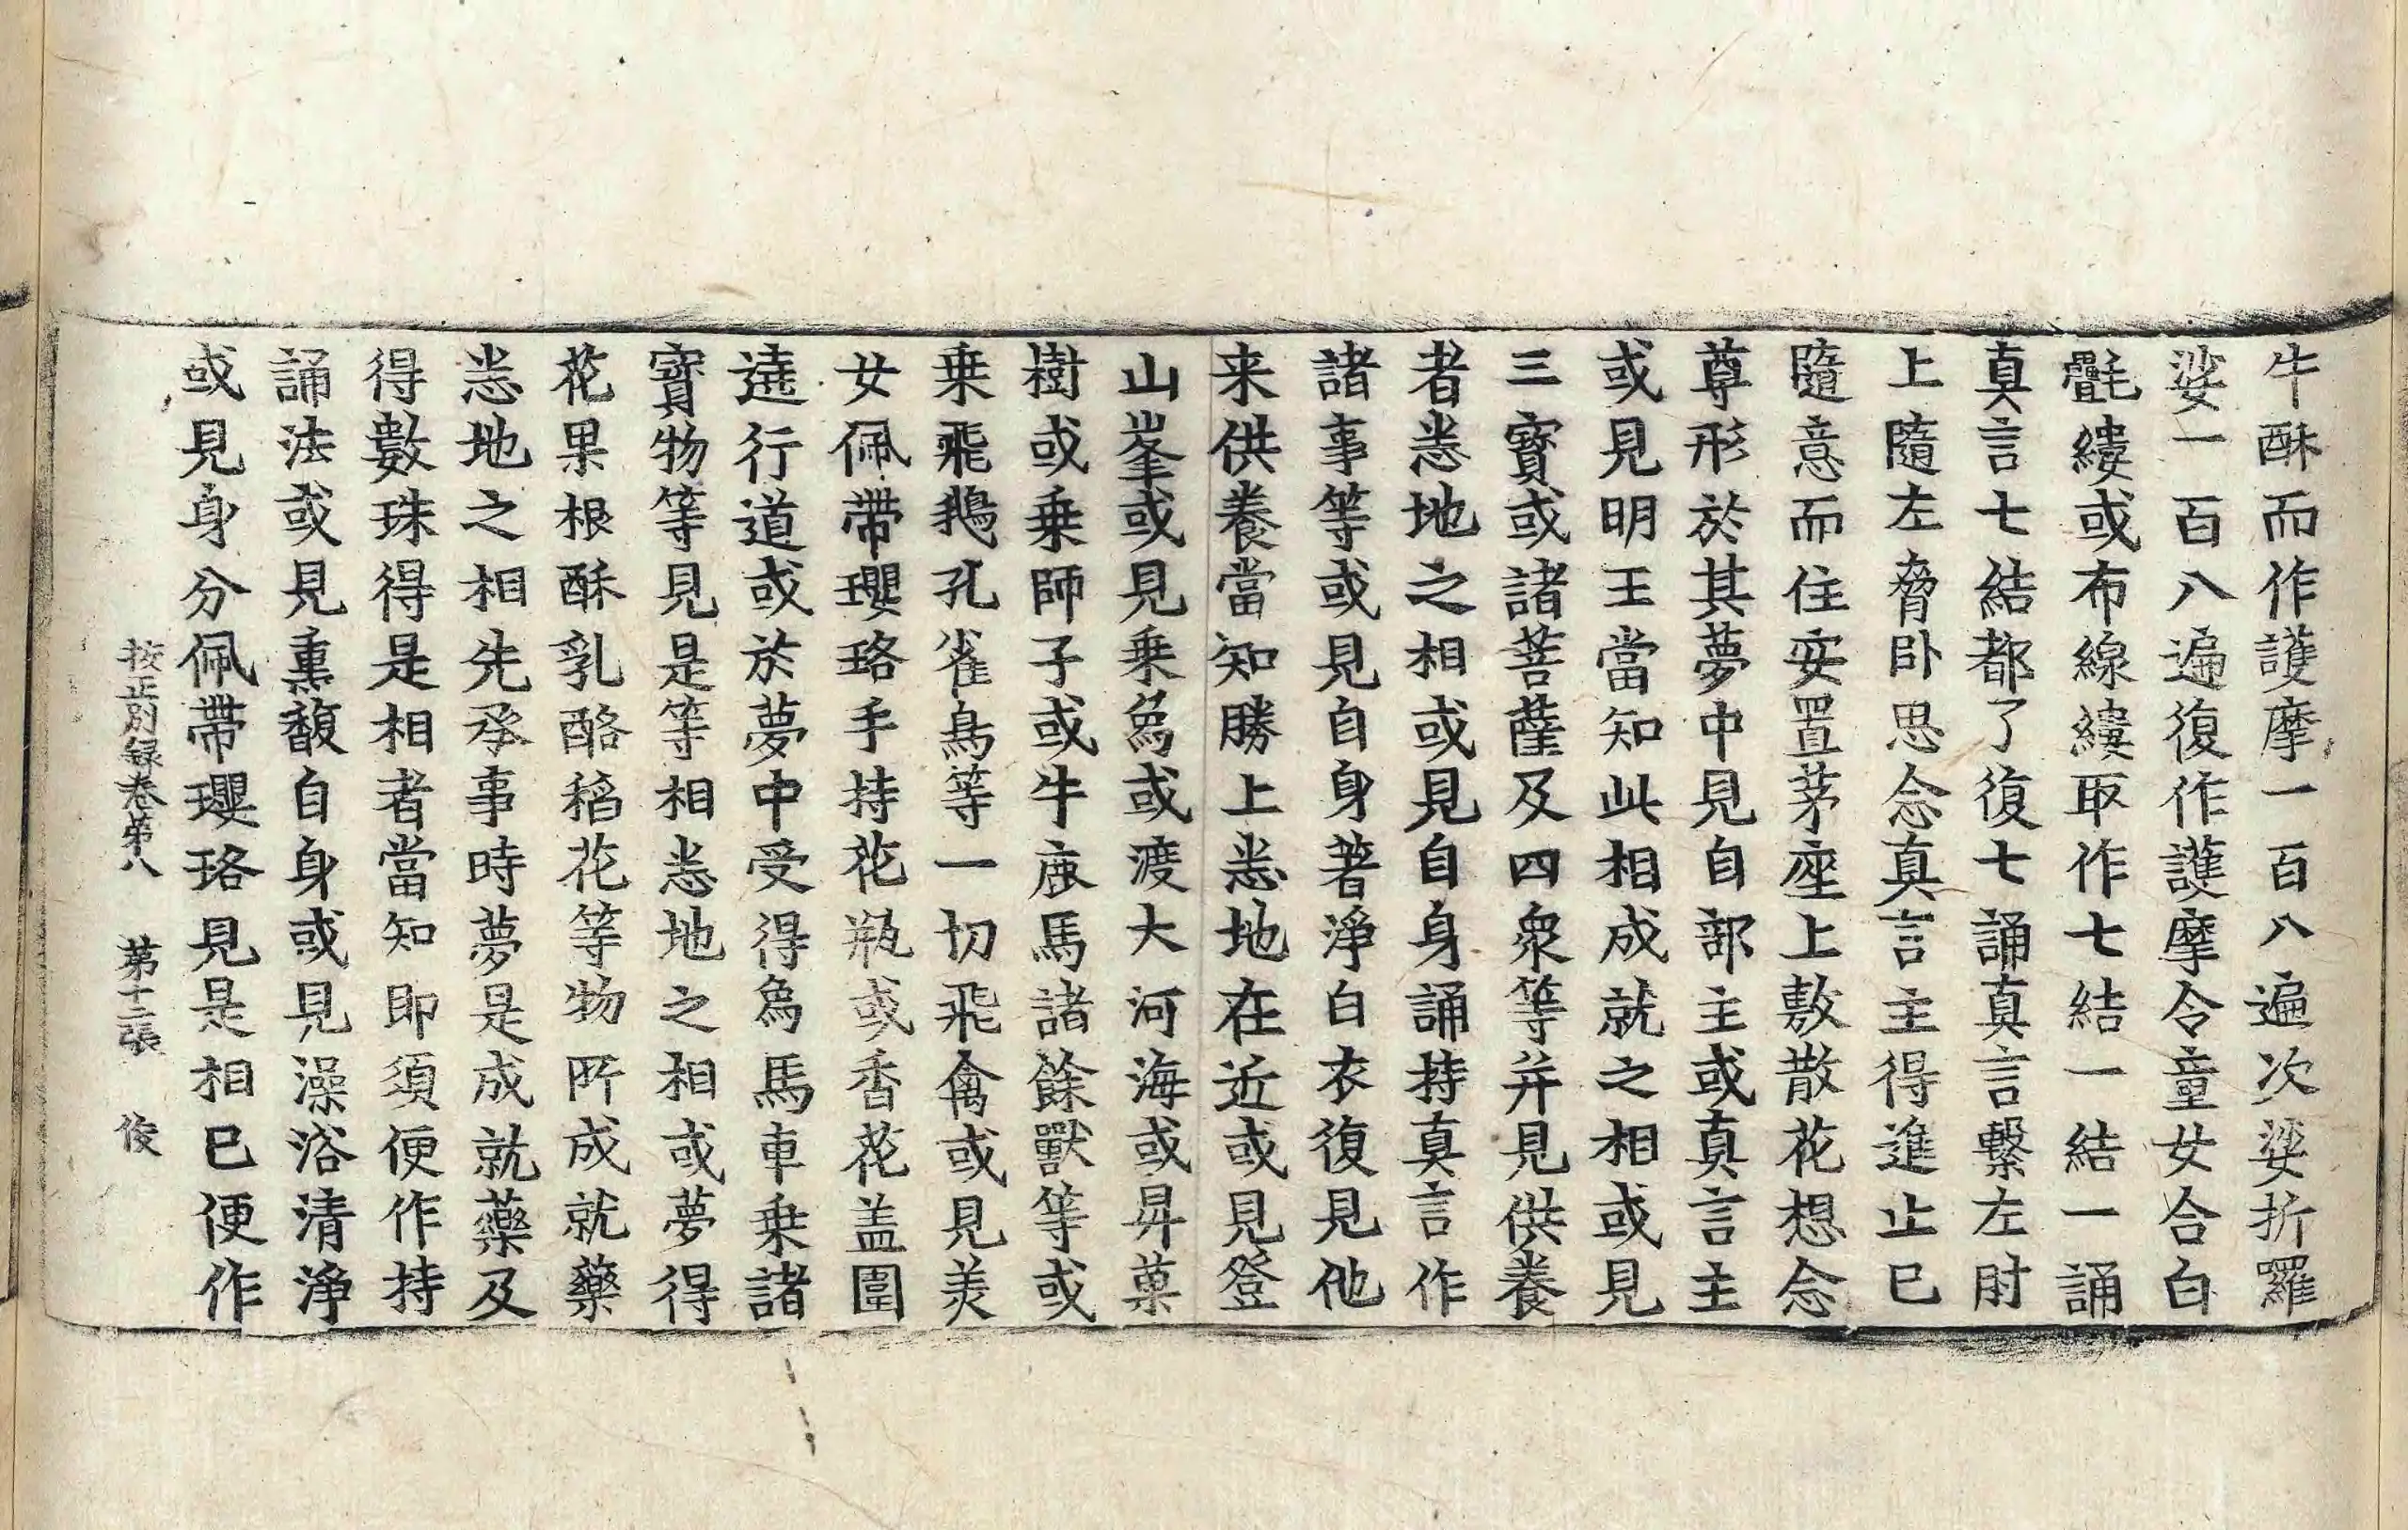 牛酥而作護摩一百八遍次娑折羅
娑一百八遍復作護摩令童女合白
㲲縷或布線縷取作七結一結一誦
真言七結都了復七誦真言繫左肘
上隨左脅卧思念真言主得進止已
隨意而住安置茅座上敷散花想念
尊形於其夢中見自部主或真言主
或見明王當知此相成就之相或見
三寳或諸菩薩及四衆等并見供養
者悉地之相或見自身誦持真言作
諸事等或見自身著淨白衣復見他
来供養當知勝上悉地在近或見登
山峯或見乗象或渡大河海或昇菓
樹或乗師子或牛鹿馬諸餘獸等或
乗飛鵝孔雀鳥等一切飛禽或見美
女佩帶瓔珞手持花瓶或香花盖圍
遶行道或於夢中受得象馬車乗諸
寳物等見是等相悉地之相或夢得
花果根酥乳酪稻花等物所成就藥
悉地之相先承事時夢是成就藥及
得數珠得是相者當知即須便作持
誦法或見熏馥自身或見澡浴清淨
或見身分佩帶瓔珞見是相已便作
按正別録卷第八 第十二張 俊